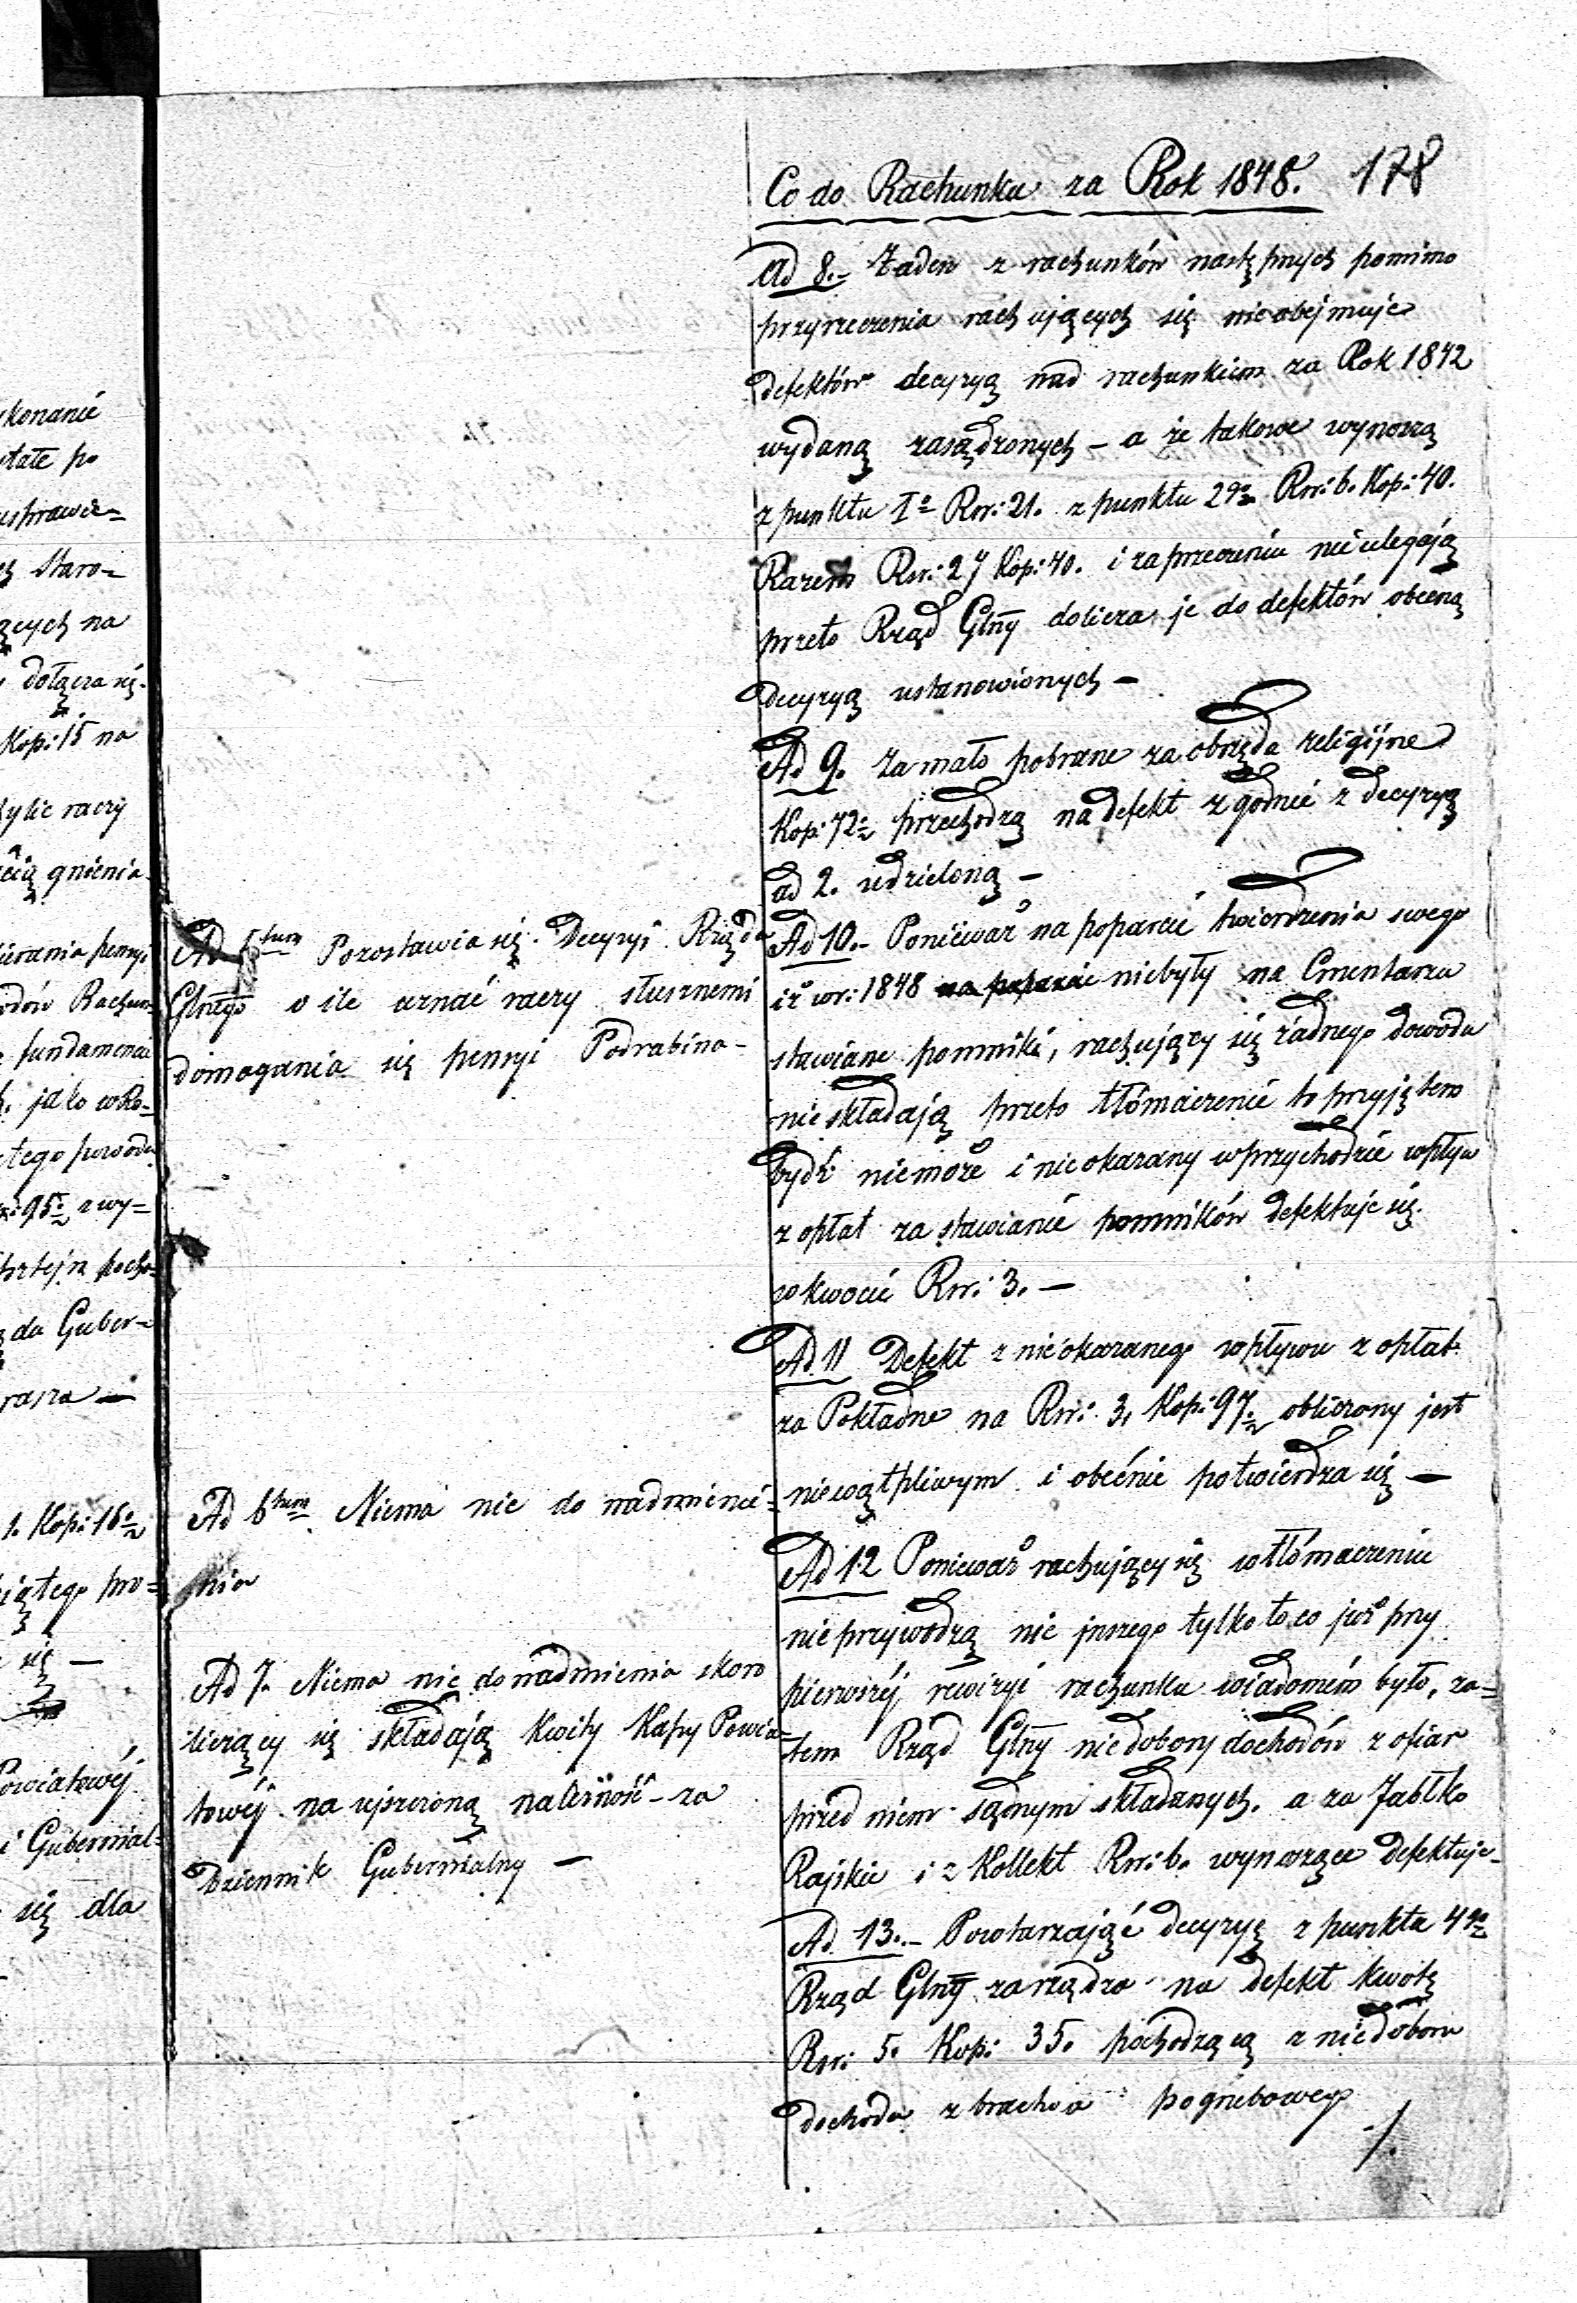 konanie
stałe po
usprawie=
Staro=
ących na
dołącza się.
Kop: 15 na
tylic raczy
ciągnienia
ierania pensyi
odów Rachun=
fundamencie
jako w Ro=
tego powodu
95 z wy=
da Guber=
1. Kop: 16
iątego pro=
się —
Powiatowéj
i Gubernial=
się dla
Ad 5tum Pozostawia się Decyzyi Rządu
Glnego o ile uznać raczy słusznemi
domagania się pensyi Podrabina —
Ad 6tum Niema nic do nadmienie=
nia
Ad 7. Niema nic do nadmienia skoro
liczący się składają Kwity Kassy Powia=
towéj na uiszczoną należność za
Dziennik Gubernialny —
Co do Rachunku za Rok 1848. 178
Ad 8. – Żaden z rachunków następnych pomimo
przyrzeczenia rachujących się nieobejmuje
defektów decyzyą nad rachunkiem za Rok 1842
wydaną zasądzonych – a że takowe wynoszą
z punktu Io Rsr: 21. z punktu 29o Rsr: 6. Kop: 40.
Razem Rsr: 27 Kop: 40. i zaprzeczeniu nieulegają
przeto Rząd Glny dolicza je do defektów obecną
Decyzyą ustanowionych –
Ad 9. Za mało pobrane za obrzęda religijne
Kop: 72 przechodzą na defekt zgodnie z decyzyą
ad 2. udzieloną –
Ad 10. – Ponieważ na poparcie twierdzenia swego
iż w r: 1848 na poparcie niebyły na Cmentarzu
stawiane pomniki, rachujący się żadnego dowodu
nie składają przeto tłómaczenie to przyjętem
bydź niemoże i nieokazany w przychodzie wpływ
z opłat za stawianie pomników defektuje się
w kwocie Rsr: 3. —
Ad 11 Defekt z nieokazanego wpływu z opłat
za Pokładne na Rsr: 3, Kop: 97 obliczony jest
niewątpliwym i obecnie potwierdza się —
Ad 12 Ponieważ rachujący się w tłómaczeniu
nie przywodzą nic jnszego tylko to co już przy
pierwszéj rewizyi rachunku wiadomém było, za=
tem Rząd Glny niedobory dochodów z ofiar
przed niem sądnym składanych. a za Jabłko
Rajskie i z Kollekt Rsr: 6. wynoszące defektuje –
Ad 13. – Powtarzając decyzyę z punktu 4go
Rząd Glny zarządza na defekt kwotę
Rsr: 5. Kop: 35. pochodzącą z niedoboru
dochodu z bractwa pogrzebowego
./.